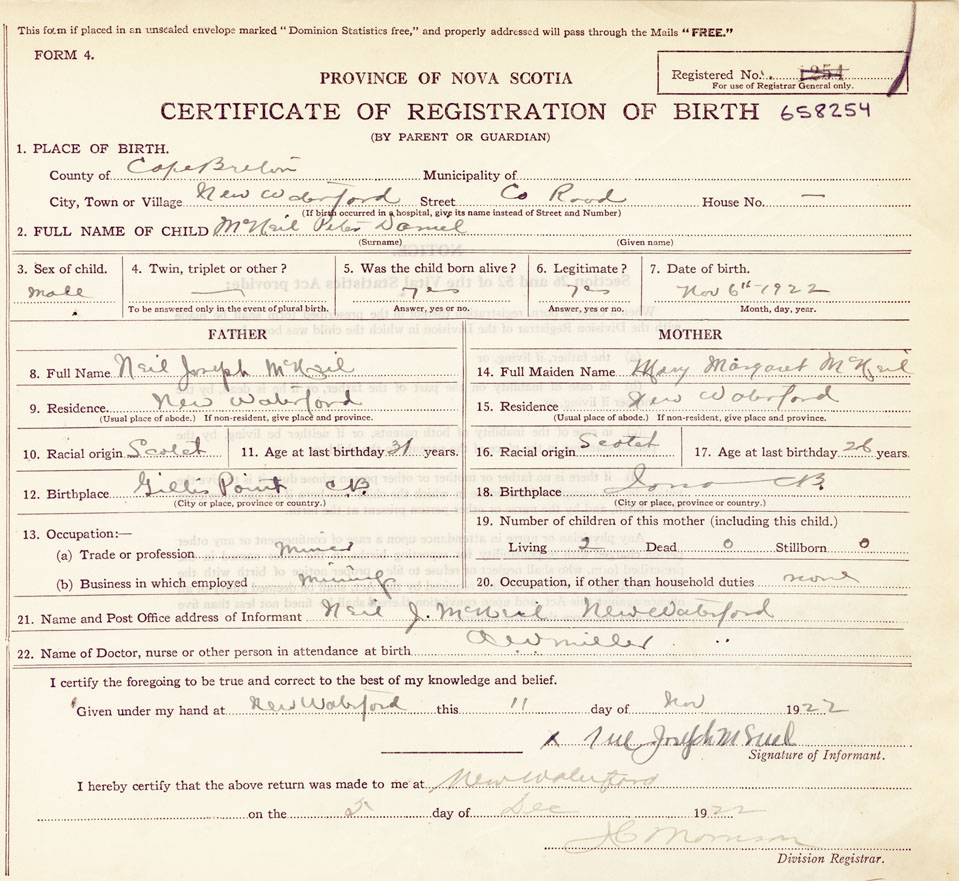 This form if placed in an unsealed envelope marked "Dominion Statistics free," and properly addressed will pass through the Mails "FREE."
FORM 4.
Registered No. 1254
For use of Registrar General only.
PROVINCE OF NOVA SCOTIA
CERTIFICATE OF REGISTRATION OF BIRTH 658254
(BY PARENT OR GUARDIAN)
1. PLACE OF BIRTH.
County of Cape Breton Municipality of
City, Town or Village New Waterford Street Co Road House No. —
(If birth occurred in a hospital, give its name instead of Street and Number)
2. FULL NAME OF CHILD McNeil Peter Daniel
(Surname) (Given name)
3. Sex of child. 4. Twin, triplet or other? 5. Was the child born alive? 6. Legitimate? 7. Date of birth.
Male — yes yes Nov 6th 1922
To be answered only in the event of plural birth. Answer, yes or no. Answer, yes or no. Month, day, year.
FATHER MOTHER
8. Full Name Neil Joseph McNeil 14. Full Maiden Name Mary Margaret McNeil
9. Residence New Waterford 15. Residence New Waterford
(Usual place of abode.) If non-resident, give place and province. (Usual place of abode.) If non-resident, give place and province.
10. Racial origin Scotch 11. Age at last birthday 31 years. 16. Racial origin Scotch 17. Age at last birthday 26 years.
12. Birthplace Gillis Point CB 18. Birthplace Iona CB
(City or place, province or country.) (City or place, province or country.)
13. Occupation:— 19. Number of children of this mother (including this child.)
(a) Trade or profession Miner Living 2 Dead 0 Stillborn 0
(b) Business in which employed Mining 20. Occupation, if other than household duties none
21. Name and Post Office address of Informant Neil J. McNeil New Waterford
22. Name of Doctor, nurse or other person in attendance at birth Miller "
I certify the foregoing to be true and correct to the best of my knowledge and belief.
Given under my hand at New Waterford this 11 day of Nov 1922
x Joseph
Signature of Informant.
I hereby certify that the above return was made to me at New Waterford
on the 5 day of Dec 1922
Morrison
Division Registrar.